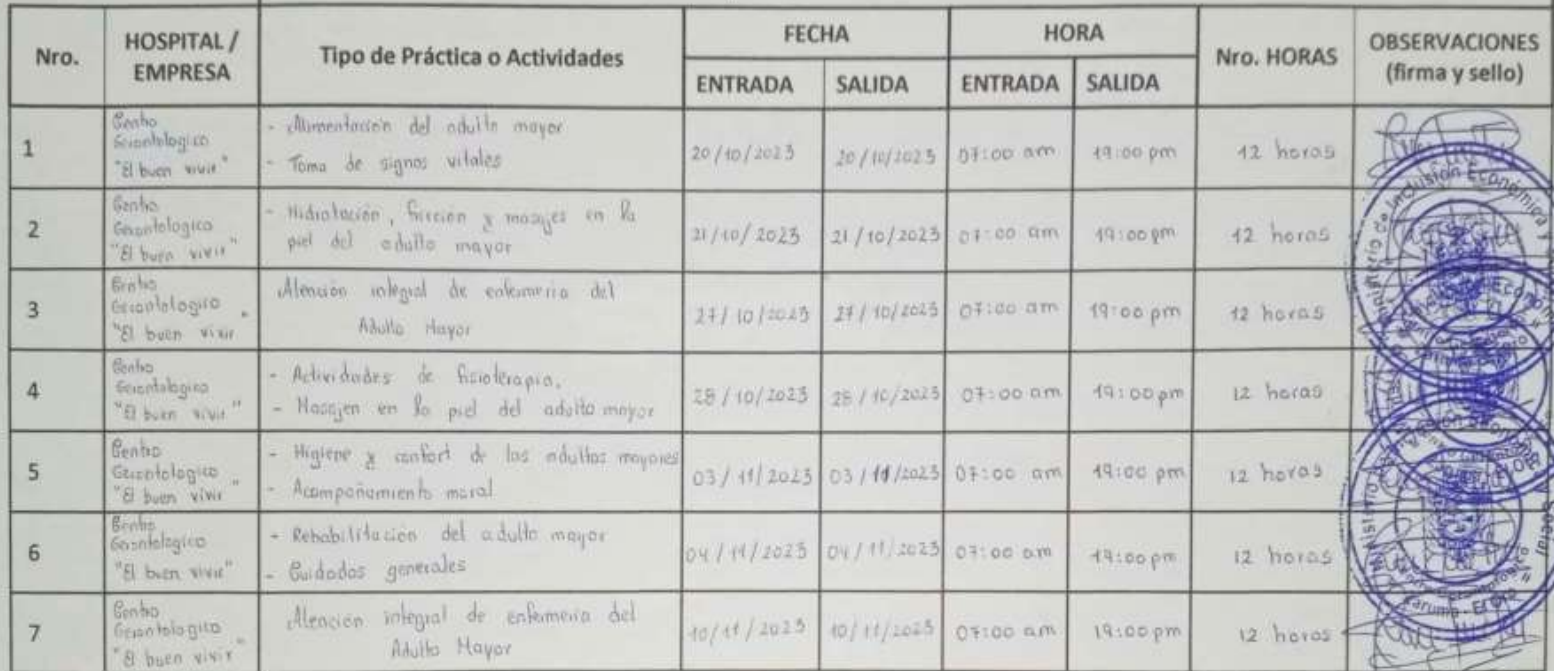 Nro. HOSPITAL / EMPRESA Tipo de Práctica o Actividades FECHA HORA Nro. HORAS OBSERVACIONES (firma y sello)
ENTRADA SALIDA ENTRADA SALIDA
1 Centro Gerontologico "El buen vivir" - Alimentación del adulto mayor
- Toma de signos vitales 20/10/2023 20/10/2023 07:00 am 19:00 pm 12 horas
2 Centro Gerontologico "El buen vivir" - Hidratación, fricción y masajes en la
piel del adulto mayor 21/10/2023 21/10/2023 07:00 am 19:00 pm 12 horas
3 Centro Gerontologico "El buen vivir" Atención integral de enfermeria del
Adulto Mayor 27/10/2023 27/10/2023 07:00 am 19:00 pm 12 horas
4 Centro Gerontologico "El buen vivir" - Actividades de fisioterapia.
- Masajen en la piel del adulto mayor 28/10/2023 28/10/2023 07:00 am 19:00 pm 12 horas
5 Centro Gerontologico "El buen vivir" - Higiene y confort de los adultos mayores
- Acompañamiento moral 03/11/2023 03/11/2023 07:00 am 19:00 pm 12 horas
6 Centro Gerontologico "El buen vivir" - Rehabilitacion del adulto mayor
- Cuidados generales 04/11/2023 04/11/2023 07:00 am 19:00 pm 12 horas
7 Centro Gerontologico "El buen vivir" Atención integral de enfermeria del
Adulto Mayor 10/11/2023 10/11/2023 07:00 am 19:00 pm 12 horas
Ministerio de Inclusión Económica y Social
Zaruma - El Oro